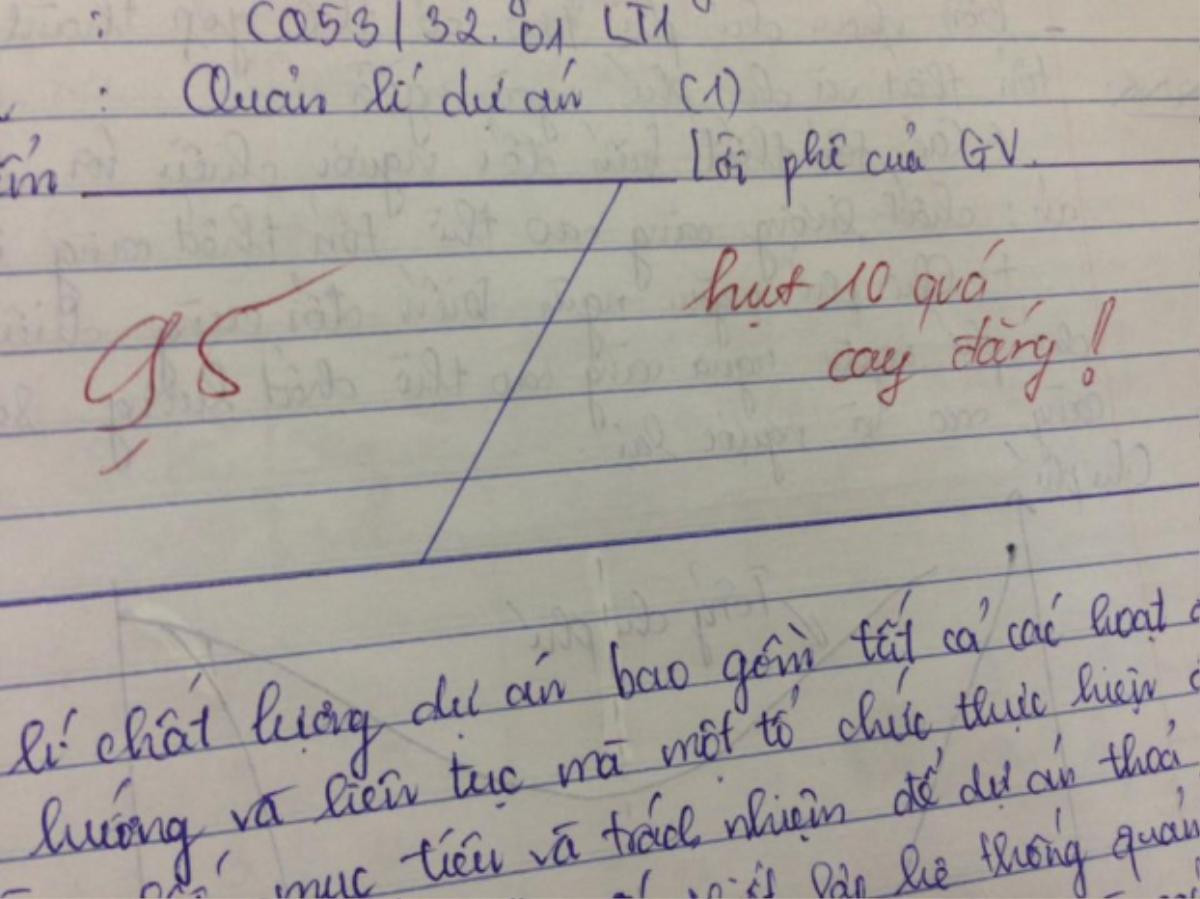 : CQ53/32.01 LT1
: Quản lí dự án (1)
Lời phê của GV.
95
hụt 10 quá
cay đắng!
lí chất lượng dự án bao gồm tất cả các hoạt
hướng và liên tục mà một tổ chức thực hiện
mục tiêu và trách nhiệm để dự án thoả
hệ thống quản